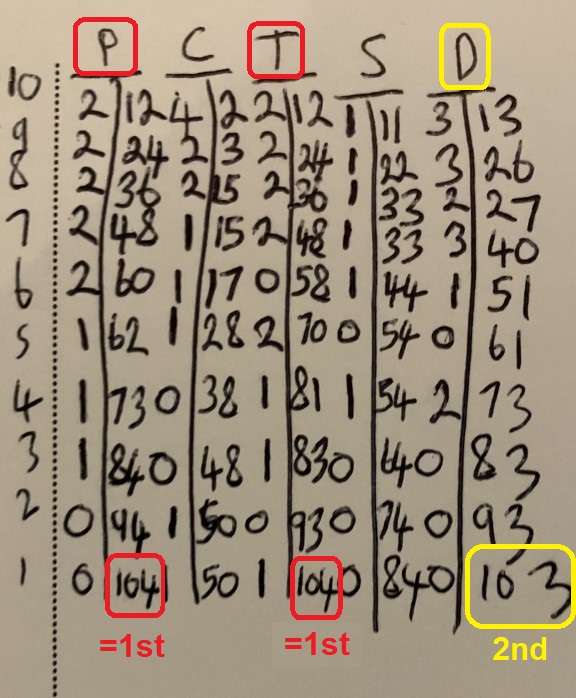 P C T S D
10 2 12 4 2 2 12 1 11 3 13
9 2 24 2 3 2 24 1 22 3 26
8 2 36 2 15 2 36 1 33 2 27
7 2 48 1 15 2 48 1 33 3 40
6 2 60 1 17 0 58 1 44 1 51
5 1 62 1 28 2 70 0 54 0 61
4 1 73 0 38 1 81 1 54 2 73
3 1 84 0 48 1 83 0 64 0 83
2 0 94 1 50 0 93 0 74 0 93
1 0 104 1 50 1 104 0 84 0 103
=1st =1st 2nd